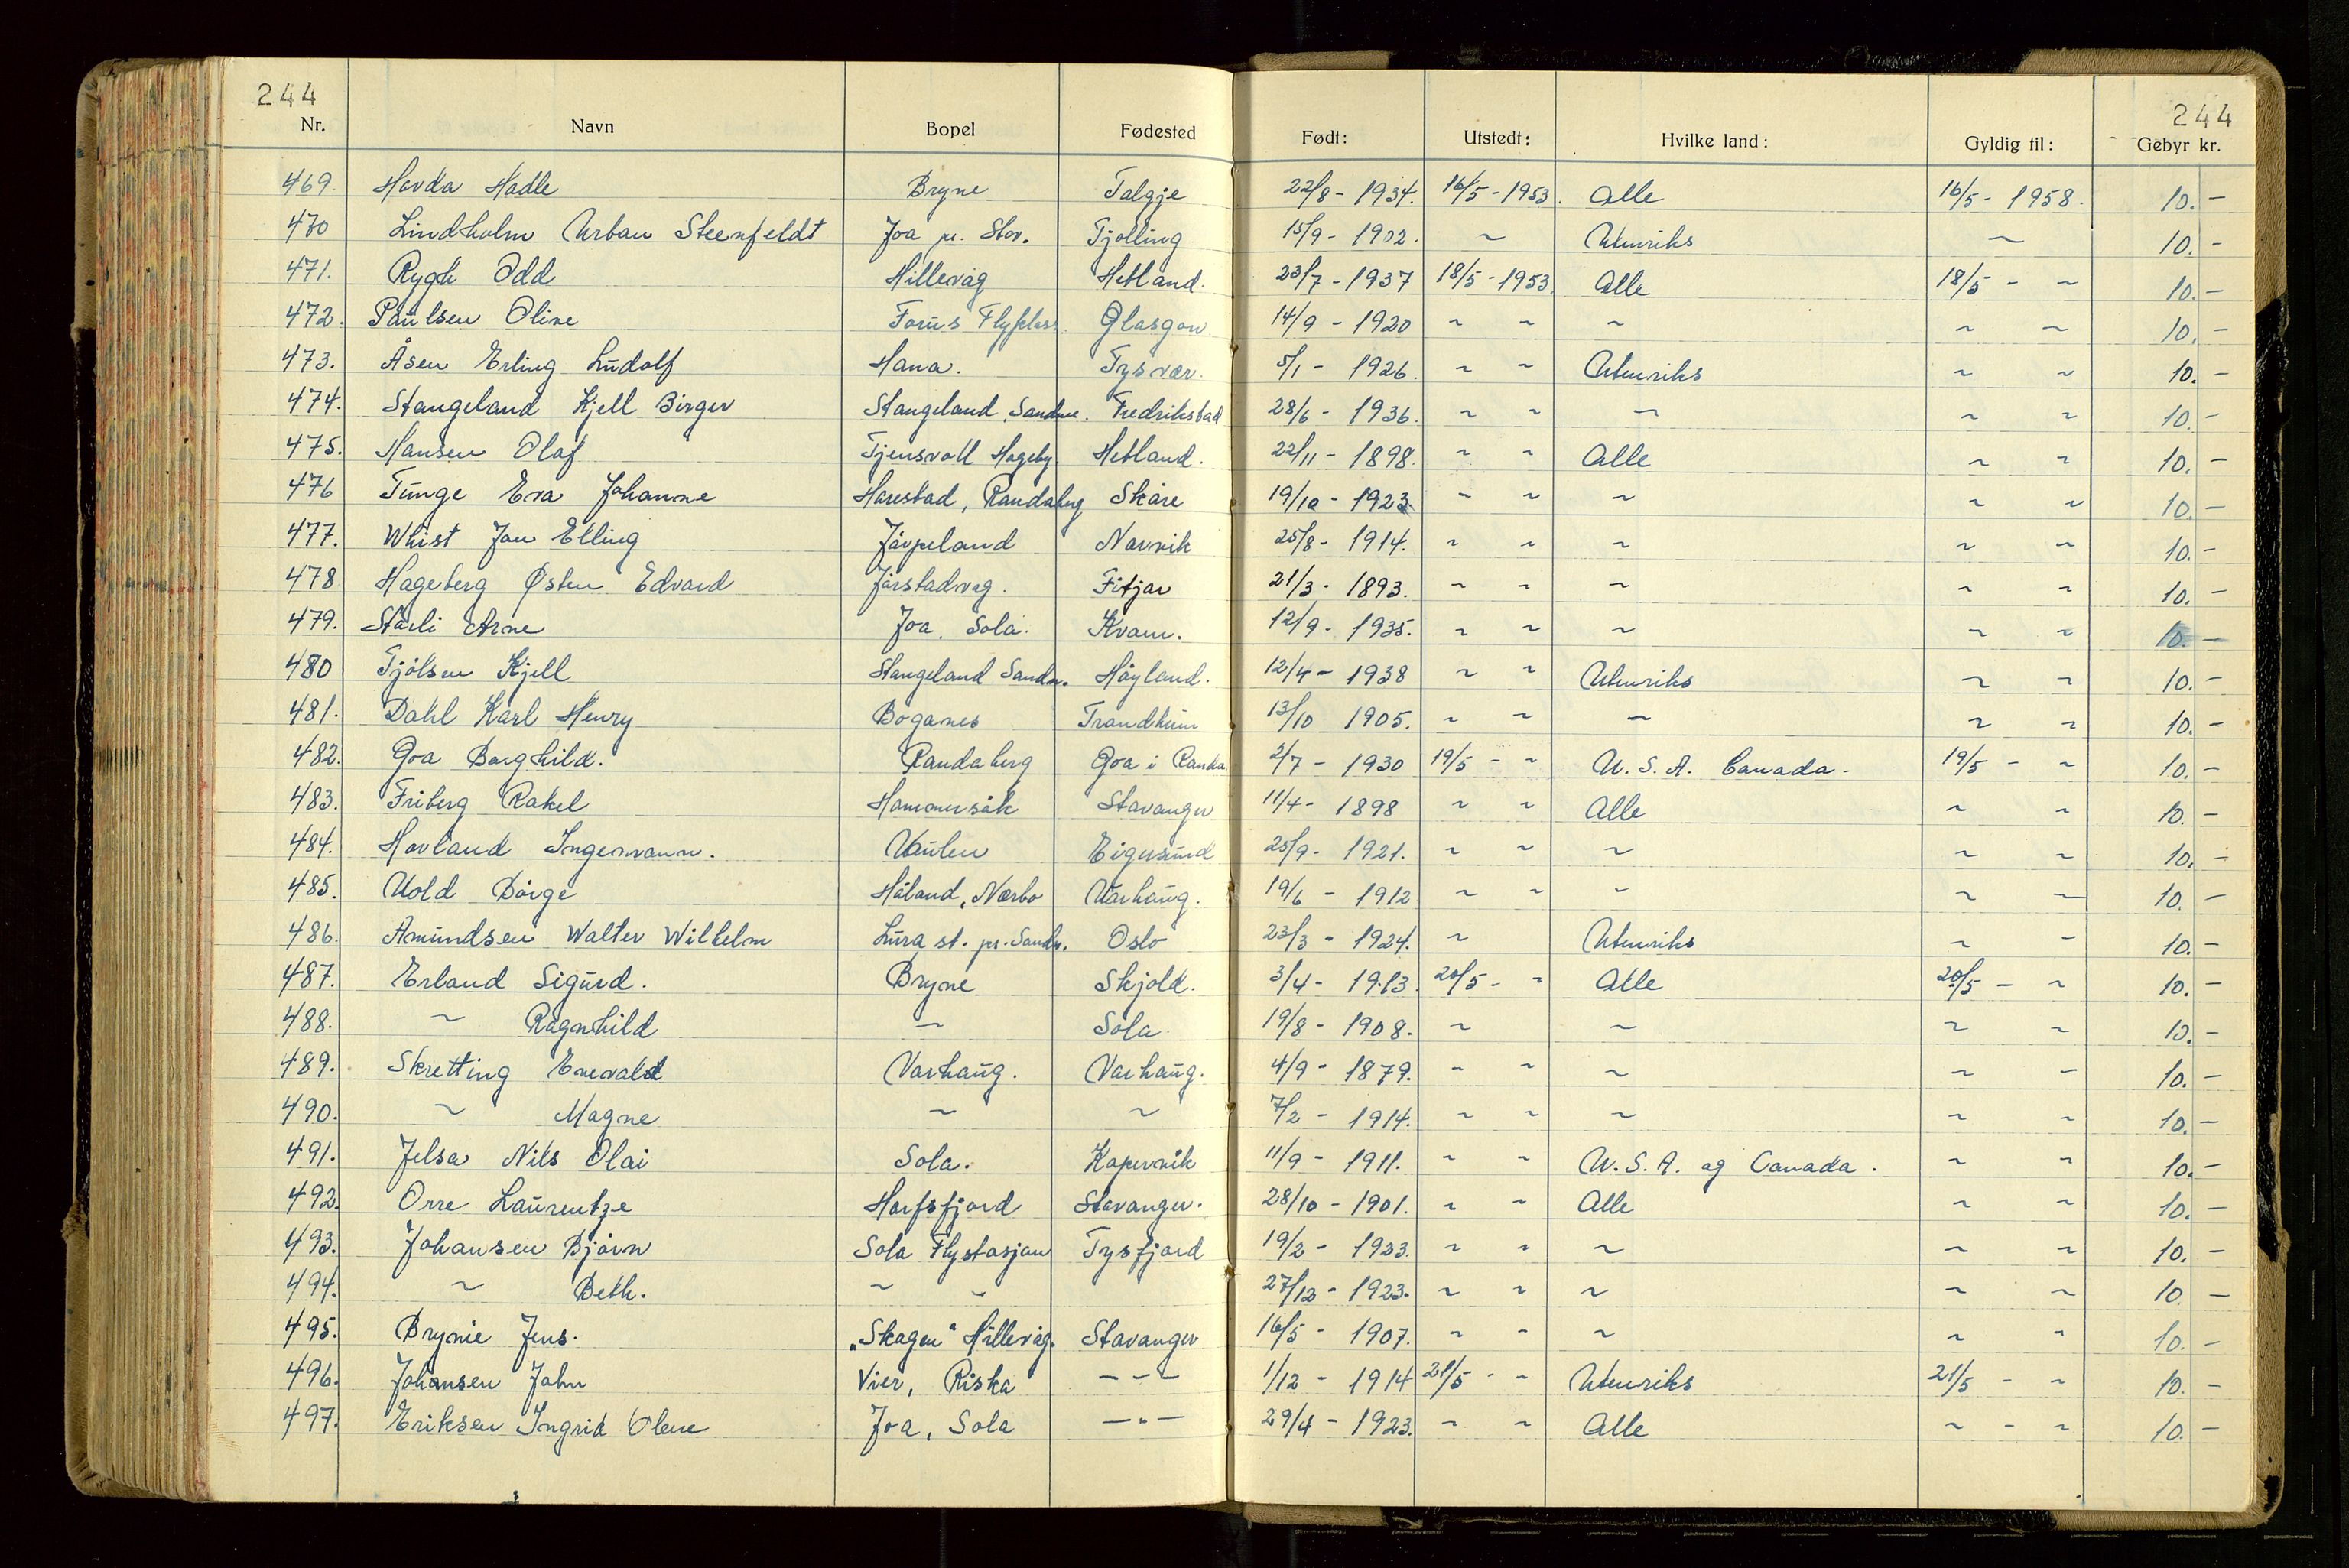 244 244
Nr. Navn Bopel Fødested Født: Utstedt: Hvilke land: Gyldig til: Gebyr kr.
469. Havda Hadle Bryne Talgje 22/8 - 1934. 16/5 - 1953. Alle 16/5 - 1958. 10. -
470 Lindholm Urban Steenfeldt Joa pr. Stav. Tjølling 15/9 - 1902. ~ Utenriks ~ 10. -
471. Rygh Odd Hillevåg Hetland. 23/7 - 1937 18/5 - 1953. Alle 18/5 - ~ 10. -
472. Paulsen Oline Forus Flyplass Glasgow 14/9 - 1920 ~ ~ ~ ~ ~ 10. -
473. Åsen Erling Ludolf Hana. Tysvær. 5/1 - 1926. ~ ~ Utenriks ~ ~ 10. -
474. Stangeland Kjell Birger Stangeland, Sandnes. Fredrikstad 28/6 - 1936. ~ ~ ~ ~ ~ 10. -
475. Hansen Olaf Tjensvoll Hageby. Hetland. 22/11 - 1898. ~ ~ Alle ~ ~ 10. -
476 Tunge Eva Johanne Harestad, Randaberg Skåre 19/10 - 1923. ~ ~ ~ ~ ~ 10. -
477. Whist Jan Elling Jårpeland Narvik 25/8 - 1914. ~ ~ ~ ~ ~ 10. -
478 Hageberg Østen Edvard Jårstadvåg. Fitjar 21/3 - 1893. ~ ~ ~ ~ ~ 10. -
479. Stårli Arne Joa, Sola. Kvam. 12/9 - 1935. ~ ~ ~ ~ ~ 10. -
480 Tjølsen Kjell Stangeland Sandn. Høyland. 12/4 - 1938 ~ ~ Utenriks ~ ~ 10. -
481. Dahl Karl Henry Boganes Trondheim 13/10 1905. ~ ~ ~ ~ ~ 10. -
482. Goa Borghild. Randaberg Goa i Randa. 2/7 - 1930 19/5 - ~ U.S.A. Canada - 19/5 - ~ 10. -
483. Friberg Rakel Hommersåk Stavanger 11/4 - 1898 ~ ~ Alle ~ ~ 10. -
484. Hovland Ingermann. Vaulen Eigersund 25/9 - 1921. ~ ~ ~ ~ ~ 10. -
485. Vold Børge Håland, Nærbø Varhaug. 19/6 - 1912 ~ ~ ~ ~ ~ 10. -
486. Amundsen Walter Wilhelm Lura st. pr. Sandn. Oslo 23/3 - 1924. ~ Utenriks ~ ~ 10. -
487. Erland Sigurd. Bryne Skjold. 3/4 - 1913. 20/5 - ~ Alle 20/5 - ~ 10. -
488. ~ Ragnhild ~ Sola. 19/8 - 1908. ~ ~ ~ ~ 10. -
489. Skretting Enevald Varhaug. Varhaug. 4/9 - 1879. ~ ~ ~ ~ ~ 10. -
490. ~ Magne ~ ~ 7/2 - 1914. ~ ~ ~ ~ ~ 10. -
491. Jelsa Nils Olai Sola. Kopervik 11/9 - 1911. ~ ~ U.S.A. og Canada. ~ ~ 10. -
492. Orre Laurentze Hafsfjord Stavanger. 28/10 - 1901. ~ ~ Alle ~ ~ 10. -
493. Johansen Bjørn Sola Flystasjon Tysfjord 19/2 - 1923. ~ ~ ~ ~ ~ 10. -
494. ~ Beth. ~ ~ 27/12 - 1923. ~ ~ ~ ~ ~ 10. -
495. Brynie Jens. „Skagen" Hillevåg. Stavanger 16/5 - 1907. ~ ~ ~ ~ ~ 10. -
496. Johansen John Vier, Riska - ~ - 1/12 - 1914 21/5 - ~ Utenriks 21/5 - ~ 10. -
497. Eriksen Ingrid Olene Joa, Sola - " - 29/4 - 1923. ~ ~ Alle ~ - ~ 10. -